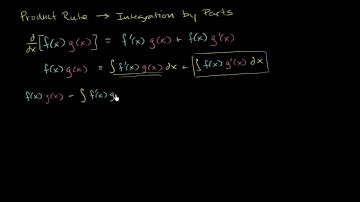 Product Rule → Integration by Parts
d/dx [f(x) g(x)] = f'(x) g(x) + f(x) g'(x)
f(x) g(x) = ∫ f'(x) g(x) dx + ∫ f(x) g'(x) dx
f(x) g(x) - ∫ f'(x) g